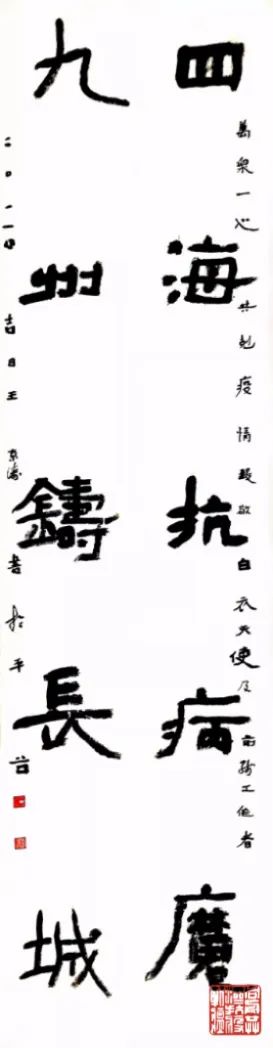 四海抗病魔
萬衆一心共剋疫情致敬白衣天使及前線工作者
九州鑄長城
吉日王書於平谷